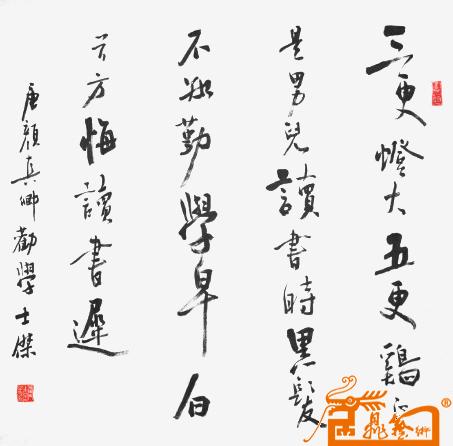 三更燈火五更鷄正
是男兒讀書時黑髮
不知勤學早白
首方悔讀書遲
唐顏真卿勸學士傑